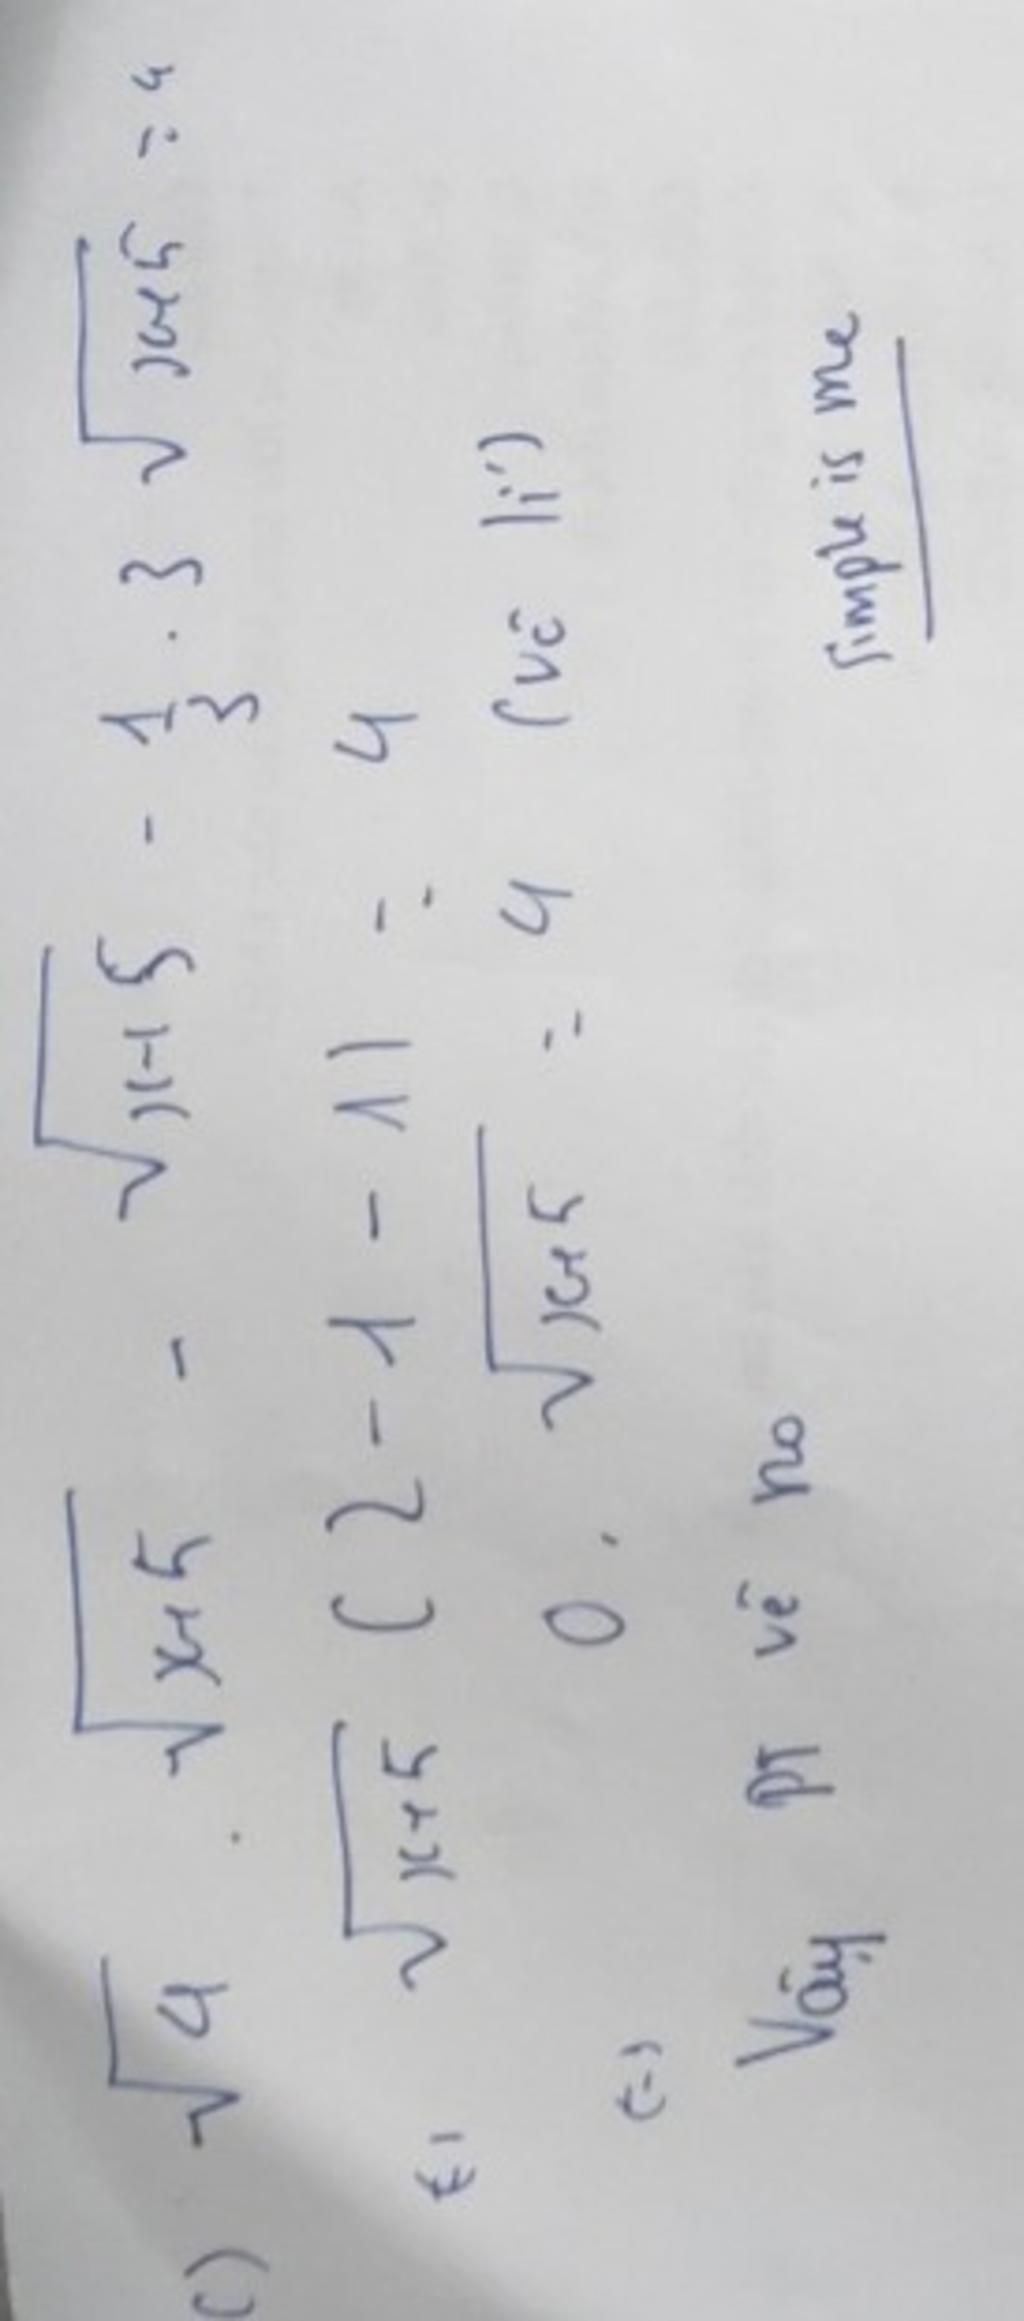 c) √4 . √x+5 - √x+5 - 1/3 . 3 √x+5 = 4
(=) √x+5 (2 - 1 - 1) = 4
(=) 0 . √x+5 = 4 (vê lí)
Vậy pt vê no
Simple is me